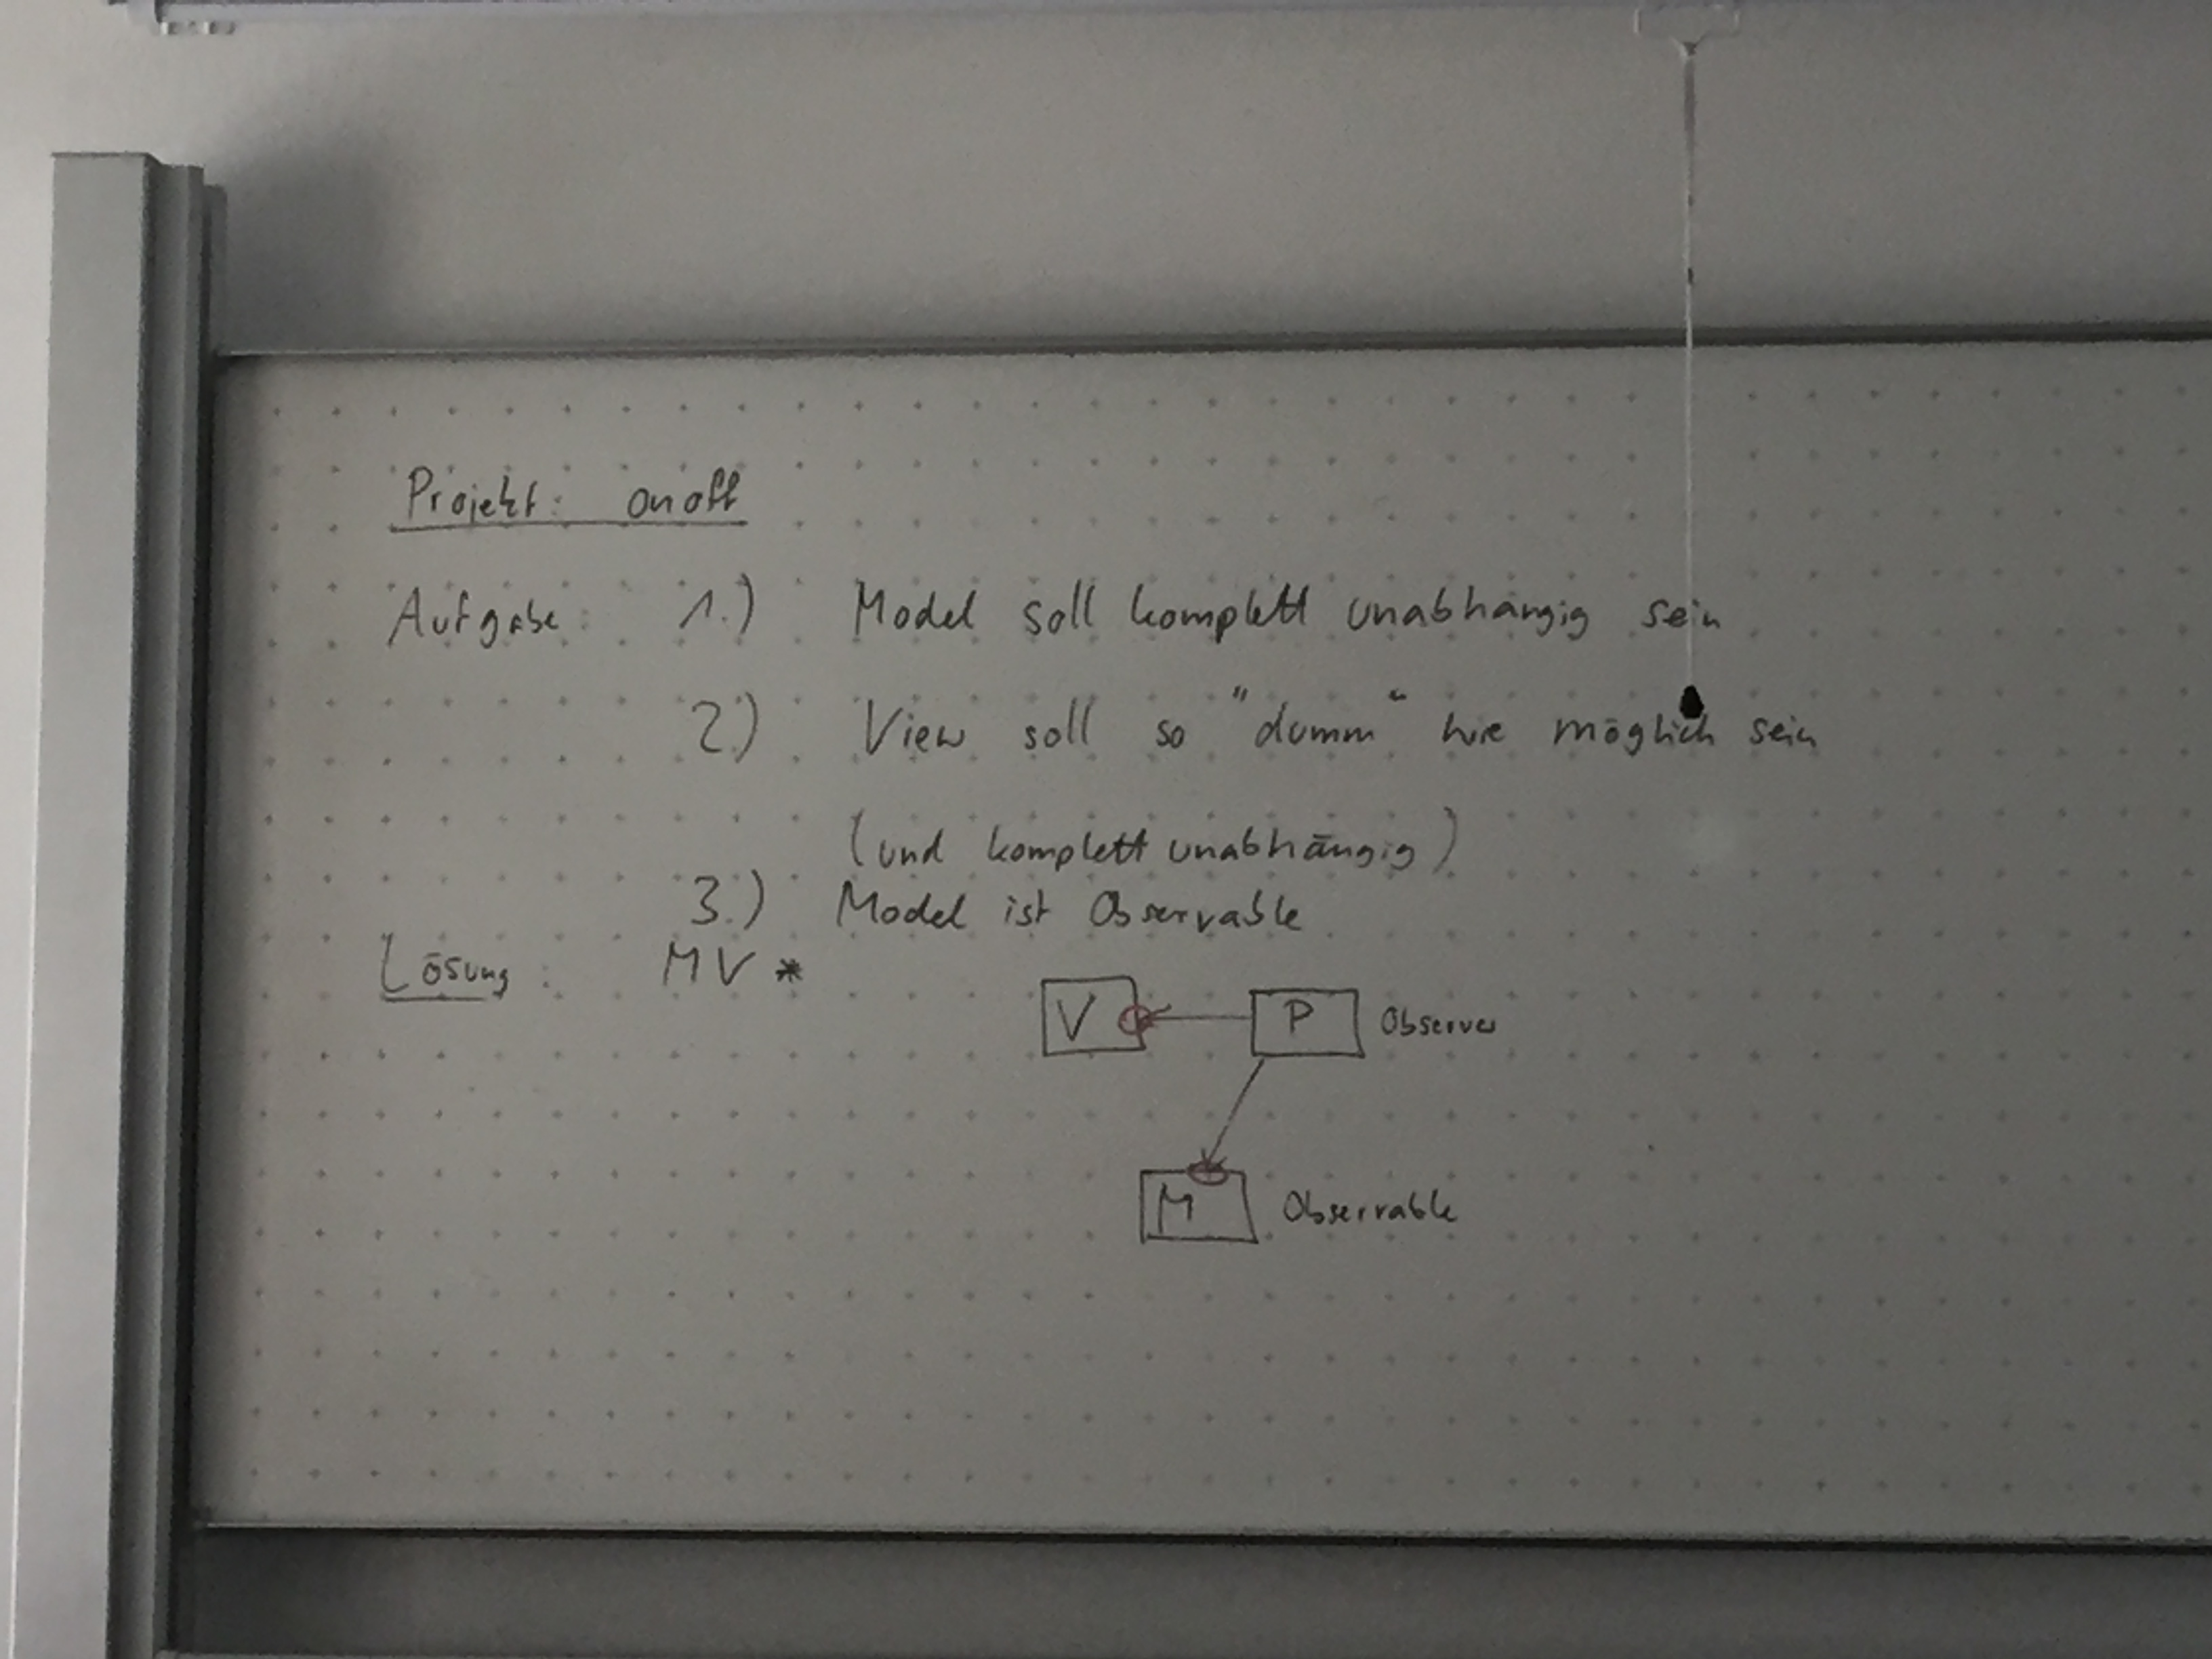 Projekt: onoff
Aufgabe: 1.) Model soll komplett unabhängig sein
2.) View soll so "dumm" wie möglich sein
(und komplett unabhängig)
3.) Model ist Observable
Lösung: MV *
V P Observer
M Observable